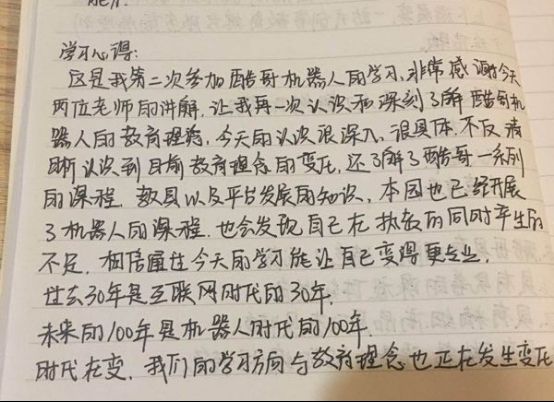 学习心得:
这是我第二次参加酷哥机器人的学习,非常感谢今天
两位老师的讲解,让我再一次认识和深刻了解酷哥机
器人的教育理念,今天的认识很深入,很具体,不仅清
晰认识到目前教育理念的变化,还了解了酷哥一系列
的课程,教具以及平台发展的知识,本园也已经开展
了机器人的课程,也会发现自己在执教的同时产生的
不足,相信通过今天的学习能让自己变得更专业,
过去30年是互联网时代的30年,
未来的100年是机器人时代的100年,
时代在变,我们的学习方向与教育理念也正在发生变化